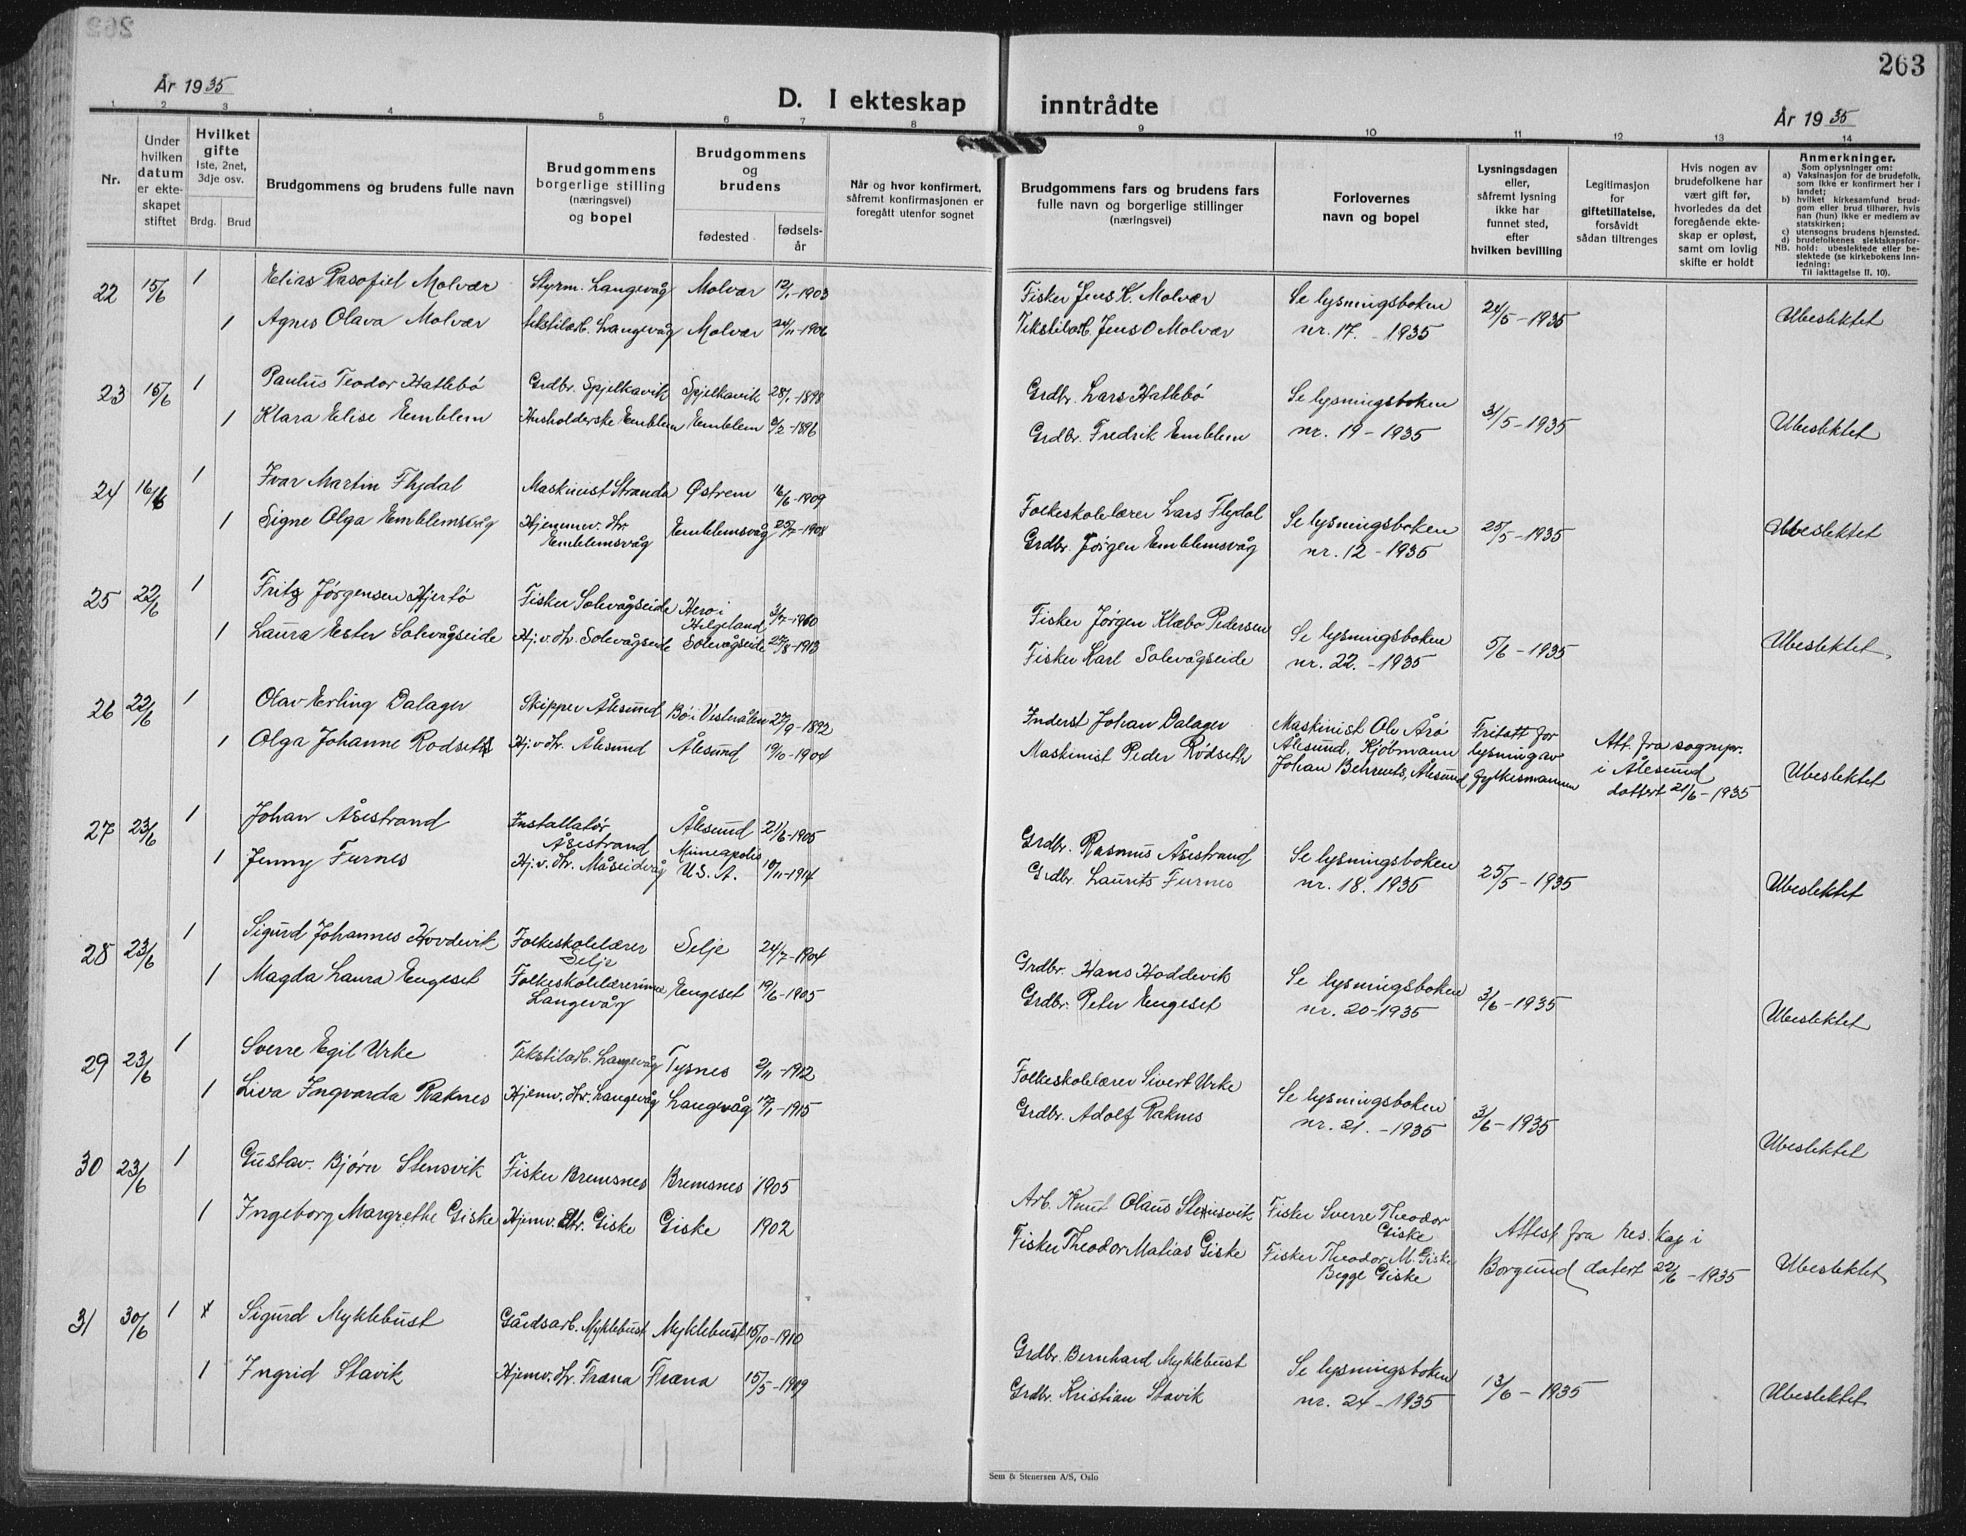 263
År 1935
D. I ekteskap inntrådte
År 1935
1 2 3 4 5 6 7 8 9 10 11 12 13 14
Nr.
Under hvilken datum er ekteskapet stiftet
Hvilket gifte
1ste, 2net, 3dje osv.
Brdg. Brud
Brudgommens og brudens fulle navn
Brudgommens borgerlige stilling (næringsvei) og bopel
Brudgommens og brudens
fødested
fødselsår
Når og hvor konfirmert, såfremt konfirmasjonen er foregått utenfor sognet
Brudgommens fars og brudens fars fulle navn og borgerlige stillinger (næringsvei)
Forlovernes navn og bopel
Lysningsdagen eller, såfremt lysning ikke har funnet sted, efter hvilken bevilling
Legitimasjon for giftetillatelse, forsåvidt sådan tiltrenges
Hvis nogen av brudefolkene har vært gift før, hvorledes da det foregående ekteskap er opløst, samt om lovlig skifte er holdt
Anmerkninger.
Som oplysninger om:
a) Vaksinasjon for de brudefolk, som ikke er konfirmert her i landet;
b) hvilket kirkesamfund brudgom eller brud tilhører, hvis han (hun) ikke er medlem av statskirken;
c) utensogns brudens hjemsted.
d) brudefolkenes slektskapsforhold: ubeslektede eller beslektede (se kirkebokens innledning:
NB.
Til iakttagelse II. 10).
22 15/6 1 Elias Rasofiel Molvær Styrm. Langevåg Molvær 12/1-1903 Fisker Jens K. Molvær Se lysningsboken 24/5-1935 Ubeslektet
1 Agnes Olava Molvær tekstilarb. Langevåg Molvær 24/11-1906 Tekstilarb. Jens O Molvær nr. 17. - 1935
23 15/6 1 Paulus Teodor Hatlebö Grdbr. Spjelkavik Spjelkavik 28/1-1898 Grdbr. Lars Hatlebö Se lysningsboken 31/5-1935 Ubeslektet
1 Klara Elise Emblem Husholderske Emblem Emblem 6/2-1896 Grdbr. Fredrik Emblem nr. 19 - 1935
24 16/6 1 Ivar Martin Flydal Maskinist Stranda Østrem 16/6-1909 Folkeskolelærer Lars Flydal Se lysningsboken 25/5-1935 Ubeslektet
1 Signe Olga Emblemsvåg Hjemmev. dtr. Emblemsvåg Emblemsvåg 25/7-1908 Grdbr. Jørgen Emblemsvåg nr. 12 - 1935
25 22/6 1 Fritz Jørgensen Hjertö Fisker Solevågseide Herøi Helgeland 3/7-1900 Fisker Jørgen Klæbo Pedersen Se lysningsboken 5/6 - 1935 Ubeslektet.
1 Laura Ester Solevågseide Hj.v. dtr. Solevågseide Solevågseide 25/8-1913 Fisker Karl Solevågseide nr. 22. - 1935
26 22/6 1 Olav Erling Dalager Skipper Ålesund Bö i Vesterålen 27/9-1892 Inderst Johan Dalager Maskinist Ole Årö Ålesund, Kjöbmann Johan Behrents, Ålesund Fritatt for lysning av fylkesmannen Att. fra sognepr. i Ålesund dattert 21/6-1935 Ubeslektet
1 Olga Johanne Rodseth Hj.v. dtr. Ålesund Ålesund 19/10-1904 Maskinist Peder Rödseth
27 23/6 1 Johan Åsestrand Installatör Åsestrand Ålesund 21/6-1905 Grdbr. Rasmus Åsestrand Se lysningsboken 25/5-1935 Ubeslektet
1 Jenny Furnes Hj.v. dtr. Måseidvåg Minneapolis U.S.A. 10/11-1914 Grdbr. Laurits Furnes nr. 18. 1935
28 23/6 1 Sigurd Johannes Hovdevik Folkeskolelærer Selje Selje 24/7-1904 Grdbr. Hans Hoddevik Se lysningsboken 3/6-1935 Ubeslektet
1 Magda Laura Engeset Folkeskolelærerinne Langevåg Engeset 19/6-1905 Grdbr. Peter Engeset nr. 20-1935
29 23/6 1 Sverre Egil Urke Tekstilarb. Langevåg Tysnes 2/11-1912 Folkeskolelærer Sivert Urke Se lysningsboken 3/6-1935 Ubeslektet
1 Liva Ingvarda Raknes Hjemv. dtr. Langevåg Langevåg 17/1-1915 Grdbr. Adolf Raknes nr. 21. - 1935
30 23/6 1 Gustav Bjørn Stensvik Fisker Bremsnes Bremsnes 1905 Arb. Knut Olaus Stensvik Fisker Sverre Theodor Giske Attest fra res. kap i Borgund datert 22/6-1935 Ubeslektet
1 Ingeborg Margrethe Giske Hjemv. dtr. Giske Giske 1902 Fisker Theodor Matias Giske Fisker Theodor M. Giske Begge Giske
31 30/6 1 Sigurd Myklebust Gårdsarb. Myklebust Myklebust 15/10-1910 Grdbr. Bernhard Myklebust Se lysningsboken 13/6-1935 Ubeslektet
1 Ingrid Stavik Hjemv. dtr. Fræna Fræna 15/5-1909 Grdbr. Kristian Stavik nr. 24 - 1935
Sem & Stenersen A/S, Oslo